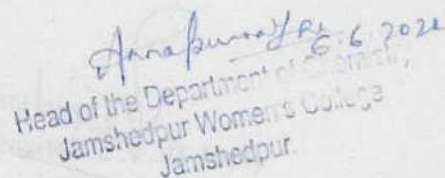 6.6.2022
Head of the Department of Chemistry,
Jamshedpur Women's College
Jamshedpur.